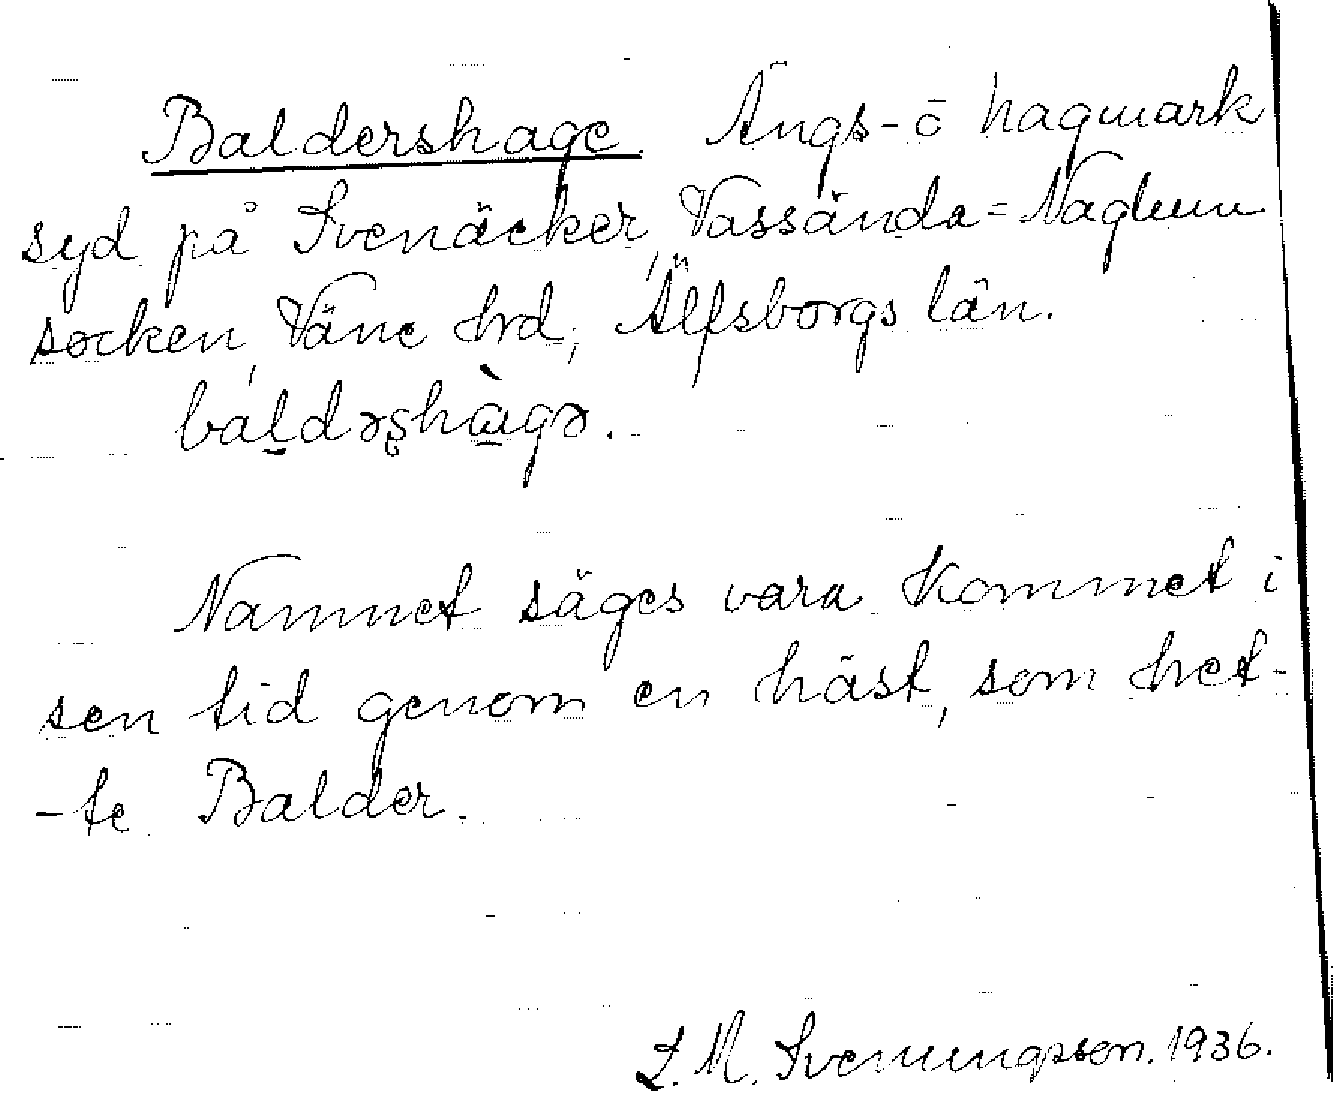 Baldershage. Ängs- o hagmark
syd på Svenäcker, Vassända=Naglum
socken, Väne hrd, Älfsborgs län.
baldərshàgə.
Namnet säges vara kommet i
sen tid genom en häst, som het-
-te Balder.
L. M. Svenungsson. 1936.